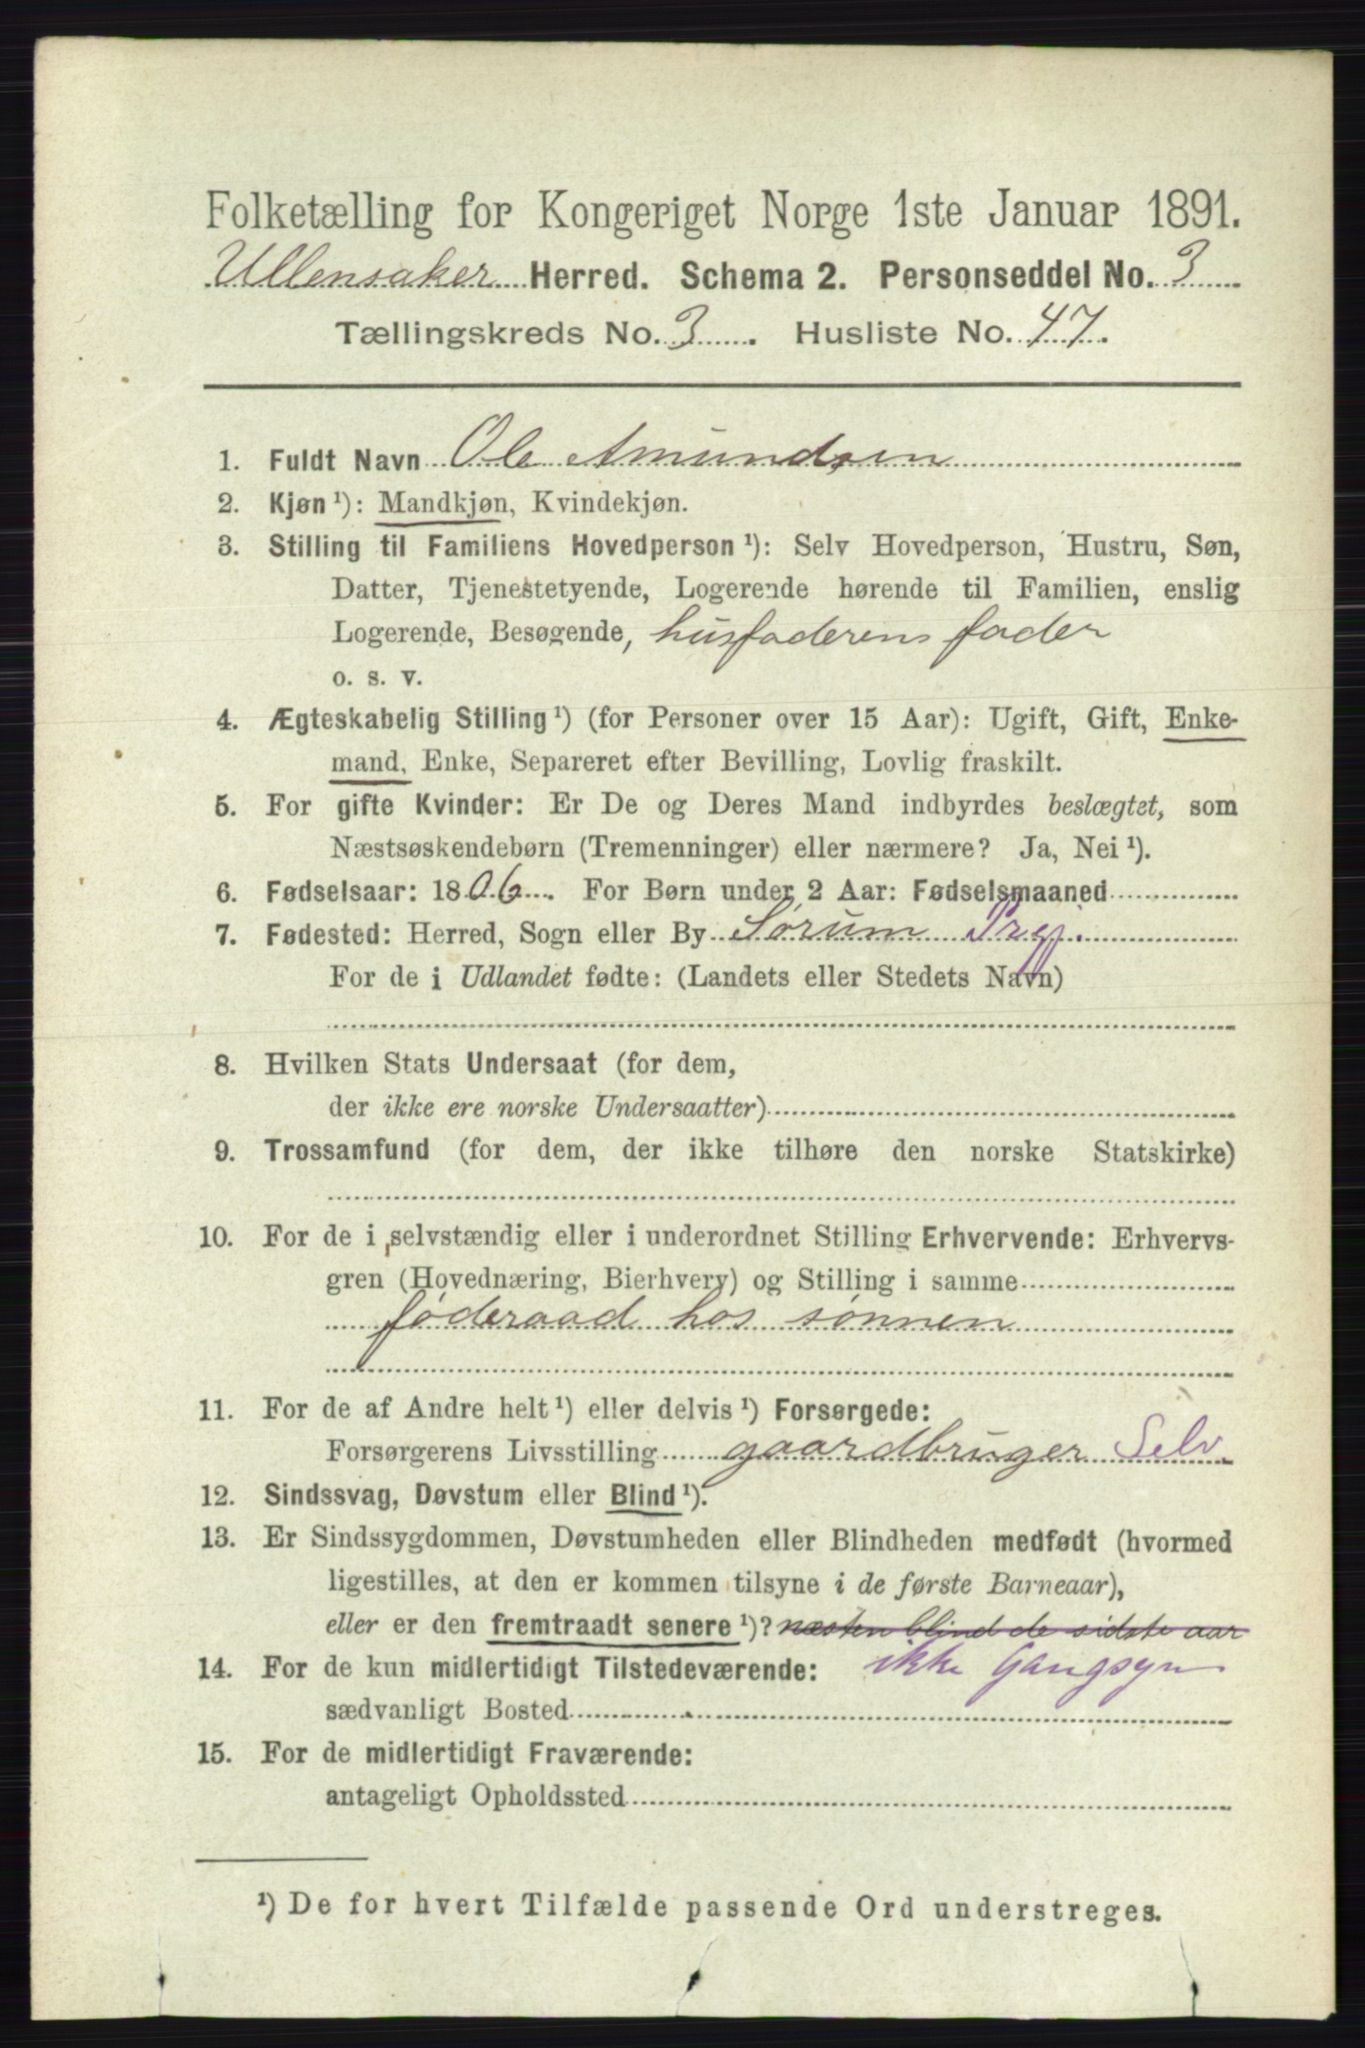 Folketælling for Kongeriget Norge 1ste Januar 1891.
Ullensaker Herred. Schema 2. Personseddel No. 3
Tællingskreds No. 3. Husliste No. 47.
1. Fuldt Navn Ole Amundsen
2. Kjøn ¹): Mandkjøn, Kvindekjøn.
3. Stilling til Familiens Hovedperson ¹): Selv Hovedperson, Hustru, Søn,
Datter, Tjenestetyende, Logerende hørende til Familien, enslig
Logerende, Besøgende, husfaderens fader
o. s. v.
4. Ægteskabelig Stilling ¹) (for Personer over 15 Aar): Ugift, Gift, Enke-
mand, Enke, Separeret efter Bevilling, Lovlig fraskilt.
5. For gifte Kvinder: Er De og Deres Mand indbyrdes beslægtet, som
Næstsøskendebørn (Tremenninger) eller nærmere? Ja, Nei ¹).
6. Fødselsaar: 1806. For Børn under 2 Aar: Fødselsmaaned
7. Fødested: Herred, Sogn eller By Sørum Prgj.
For de i Udlandet fødte: (Landets eller Stedets Navn)
8. Hvilken Stats Undersaat (for dem,
der ikke ere norske Undersaatter)
9. Trossamfund (for dem, der ikke tilhøre den norske Statskirke)
10. For de i selvstændig eller i underordnet Stilling Erhvervende: Erhvervs-
gren (Hovednæring, Bierhverv) og Stilling i samme
føderaad hos sønnen
11. For de af Andre helt ¹) eller delvis ¹) Forsørgede:
Forsørgerens Livsstilling gaardbruger Selv.
12. Sindssvag, Døvstum eller Blind ¹).
13. Er Sindssygdommen, Døvstumheden eller Blindheden medfødt (hvormed
ligestilles, at den er kommen tilsyne i de første Barneaar),
eller er den fremtraadt senere ¹)? næsten blind de sidste aar
14. For de kun midlertidigt Tilstedeværende: ikke Gangsyn
sædvanligt Bosted
15. For de midlertidigt Fraværende:
antageligt Opholdssted
¹) De for hvert Tilfælde passende Ord understreges.